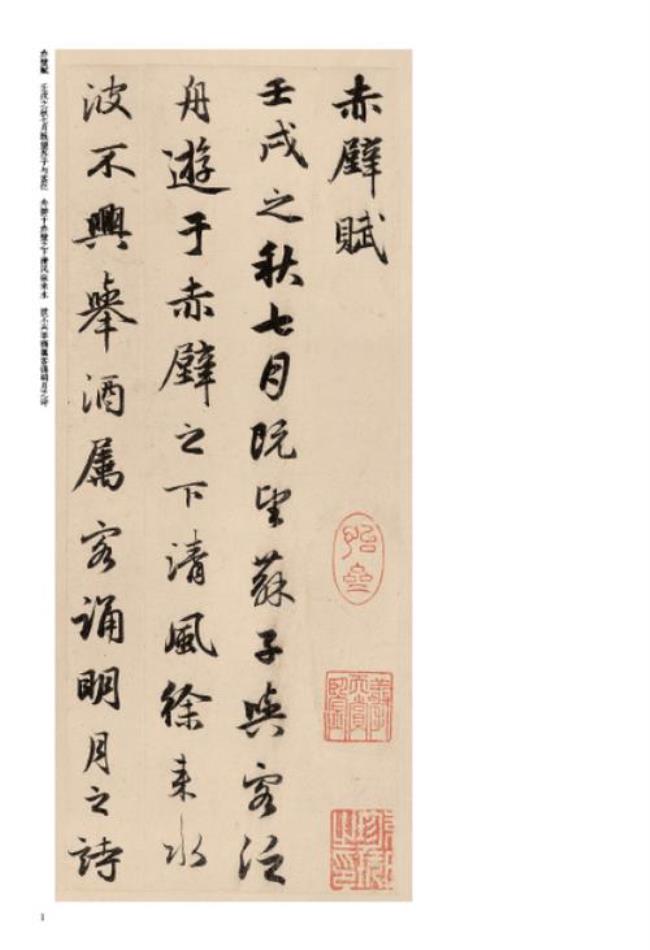 赤壁賦
壬戌之秋七月既望蘇子與客泛
舟遊于赤壁之下清風徐来水
波不興舉酒属客誦明月之詩
赤壁赋 壬戌之秋七月既望苏子与客泛 舟游于赤壁之下清风徐来水 波不兴举酒属客诵明月之诗
1